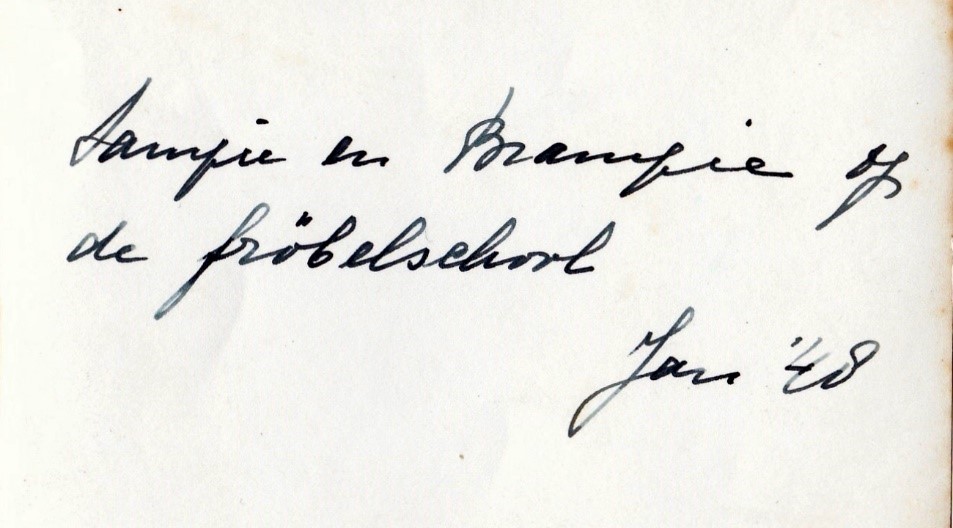 Sampie en Brampie op
de fröbelschool
Jan '48